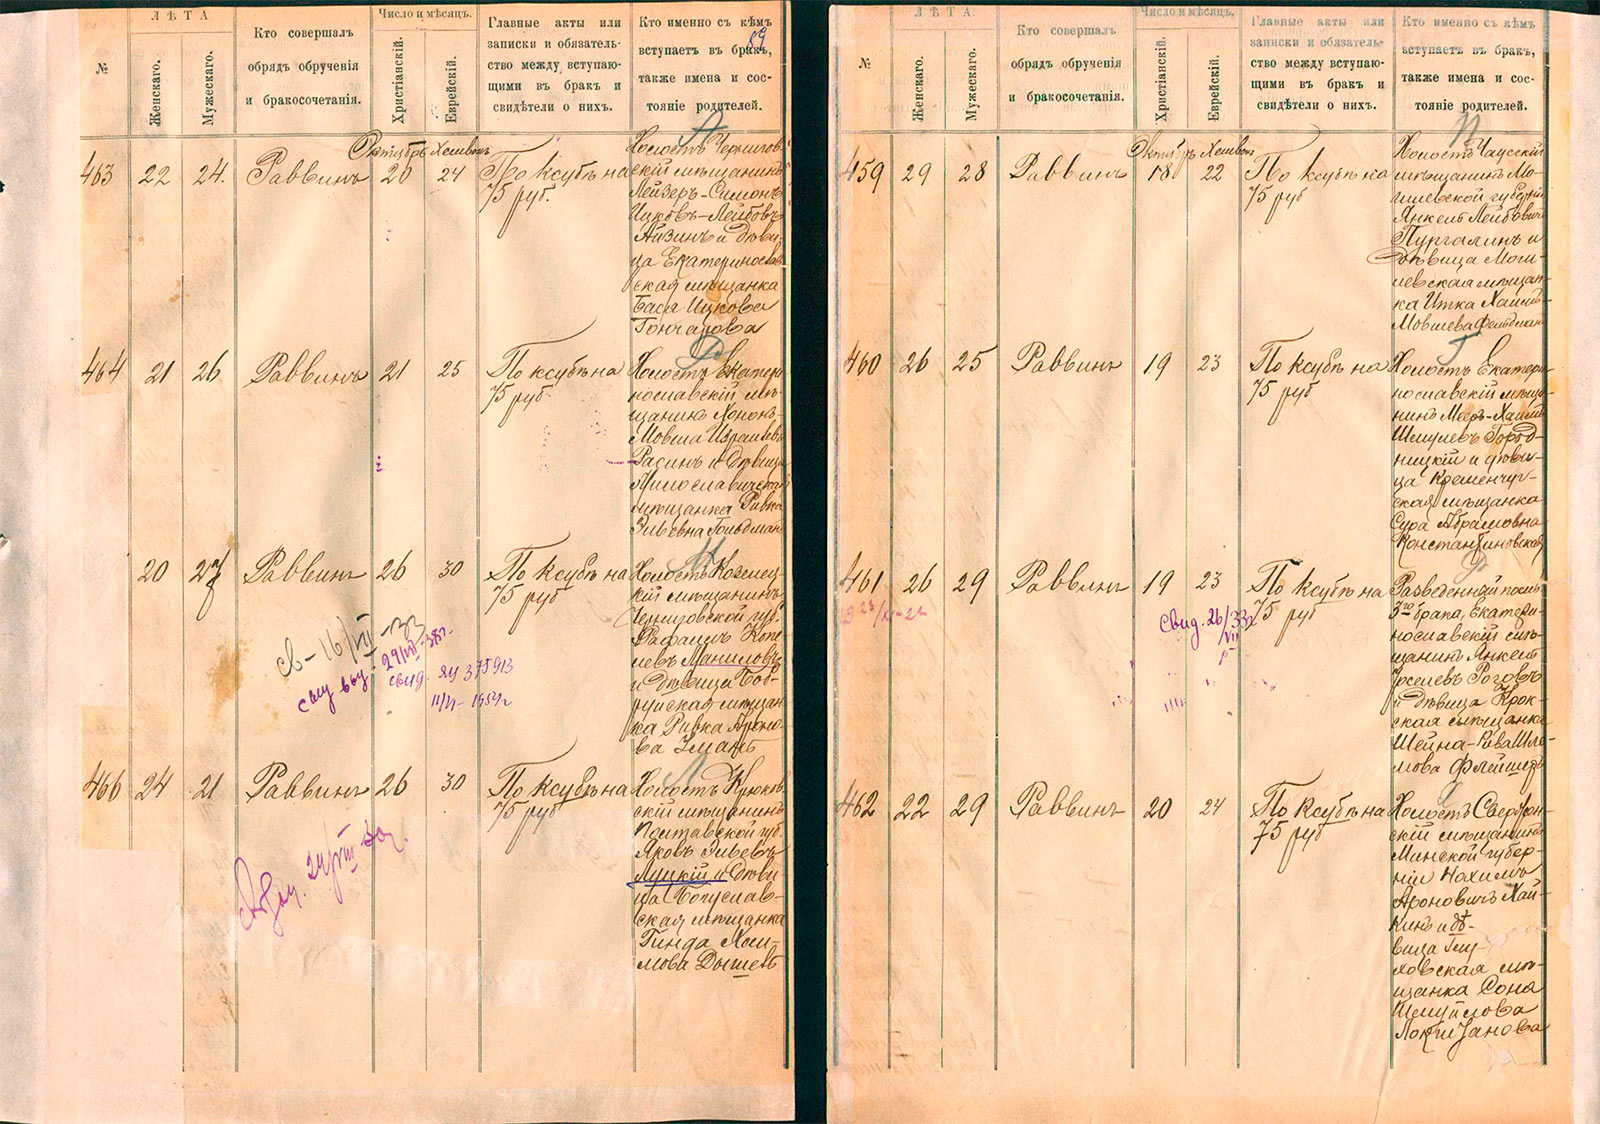 ЛѢТА
Число и мѣсяцъ.
№
Женскаго.
Мужескаго.
Кто совершалъ
обрядъ обрученія
и бракосочетанія.
Христіанскій.
Еврейскій.
Главные акты или
записки и обязатель-
ство между вступаю-
щими въ бракъ и
свидѣтели о нихъ.
Кто именно съ кѣмъ
вступаетъ въ бракъ,
также имена и сос-
тояніе родителей.
59
Октябрь Хешвонъ
463 22 24. Раввинъ 20 24
По ксубѣ на
75 руб.
Холостъ Чернигов-
скій мѣщанинъ
Лейзеръ-Симонъ
Ицковъ-Лейбовъ
Айзинъ и дѣви-
ца Екатеринослав-
ская мѣщанка
Бася Ицкова
Гончарова
464 21 26 Раввинъ 21 25
По ксубѣ на
75 руб.
Р
Холостъ Екатери-
нославскій мѣ-
щанинъ Хононъ-
Мовша Израилевъ
Расинъ и дѣвица
мѣщанка Ривка
Эльевна Гольдман
20 27 Раввинъ 26 30
По ксубѣ на
75 руб
М
Холостъ Козелец-
кій мѣщанинъ
Черниговской губ.
Рафаилъ Копе-
левъ Маниловъ
и дѣвица Боб-
руйская мѣщан-
ка Ривка Ароно-
ва Эманъ
св-16/VII-33
29/VII-38г.
свид. ЯЦ 375913
11/VI-1954г
466 24 21 Раввинъ 26 30
По ксубѣ на
75 руб
Л
Холостъ Крюков-
скій мѣщанинъ
Полтавской губ.
Яковъ Эльевъ
Луцкій и дѣви-
ца Богуслав-
ская мѣщанка
Гинда Хаи-
мова Дышель
24/VIII
ЛѢТА.
Число и мѣсяцъ.
№
Женскаго.
Мужескаго.
Кто совершалъ
обрядъ обрученія
и бракосочетанія.
Христіанскій.
Еврейскій.
Главные акты или
записки и обязатель-
ство между вступаю-
щими въ бракъ и
свидѣтели о нихъ.
Кто именно съ кѣмъ
вступаетъ въ бракъ,
также имена и сос-
тояніе родителей.
П
Октябрь Хешвон
459 29 28 Раввинъ 18 22
По ксубѣ на
75 руб
Холостъ Чаусскій
мѣщанинъ Мо-
гилевской губерніи
Янкель Лейбовичъ
Пургалинъ и
дѣвица Моги-
левская мѣщан-
ка Итка Хаимъ-
Мовшева Фельдман
460 26 25 Раввинъ 19 23
По ксубѣ на
75 руб
Г
Холостъ Екатери-
нославскій мѣща-
нинъ Меер-Хаимъ
Шмулевъ Город-
ницкій и дѣви-
ца Кременчуг-
ская мѣщанка
Сура Абрамовна
Константиновская
461 26 29 Раввинъ 19 23
По ксубѣ на
75 руб
Р
Разведенный послѣ
3го брака, Екатери-
нославскій мѣ-
щанинъ Янкель
Іоселевъ Роговъ
и дѣвица Крок-
ская мѣщанка
Шейна-Рива Шло-
мова Флейшеръ
свид. 26/VII 33г
462 22 29 Раввинъ 20 24
По ксубѣ на
75 руб
Минской губер-
ніи Нахимъ
Ароновичъ Хай-
кинъ и дѣ-
вица Глу-
ховская мѣ-
щанка Соня
Шмуйлова